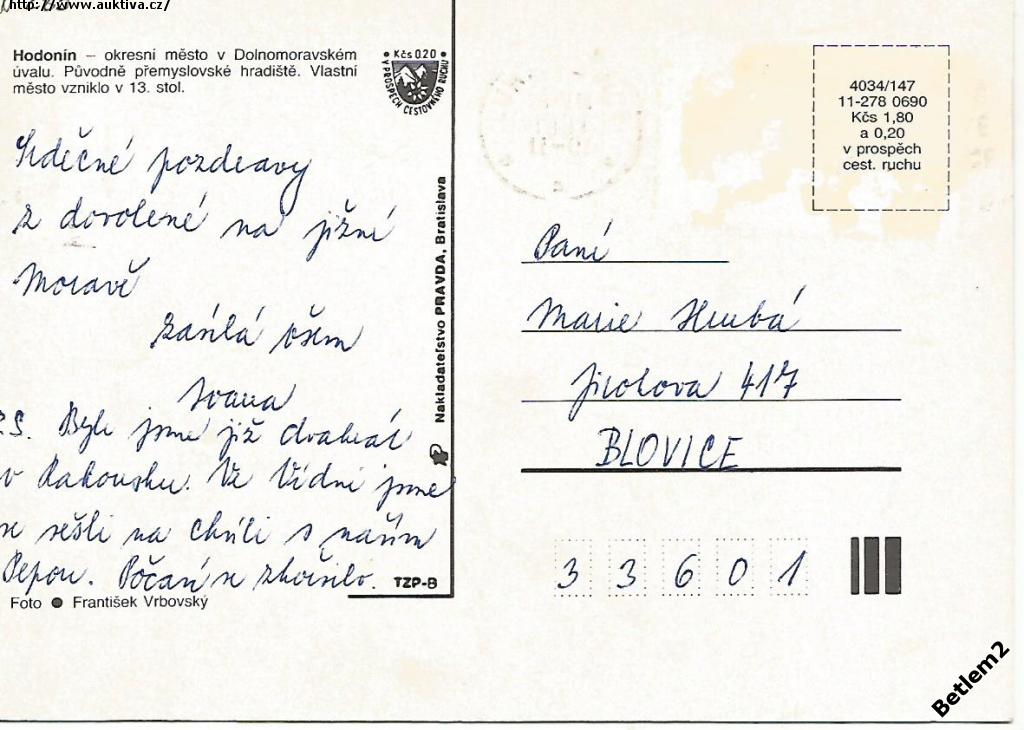 http://www.auktiva.cz/
Hodonín – okresní město v Dolnomoravském
úvalu. Původně přemyslovské hradiště. Vlastní
město vzniklo v 13. stol.
• Kčs 020 •
V PROSPĚCH CESTOVNÉHO RUCHU
4034/147
11-278 0690
Kčs 1,80
a 0,20
v prospěch
cest. ruchu
Srdečné pozdravy
z dovolené na jižní
Moravě
zasílá všem
Ivana
P.S. Byli jsme již dvakrát
v Rakousku. Ve Vídni jsme
se sešli na chvíli s naším
Pepou. Počasí se zhoršilo.
Nakladateľstvo PRAVDA, Bratislava
TZP-B
Foto ● František Vrbovský
Paní
Marie Hrubá
417
BLOVICE
33601
Betlem2